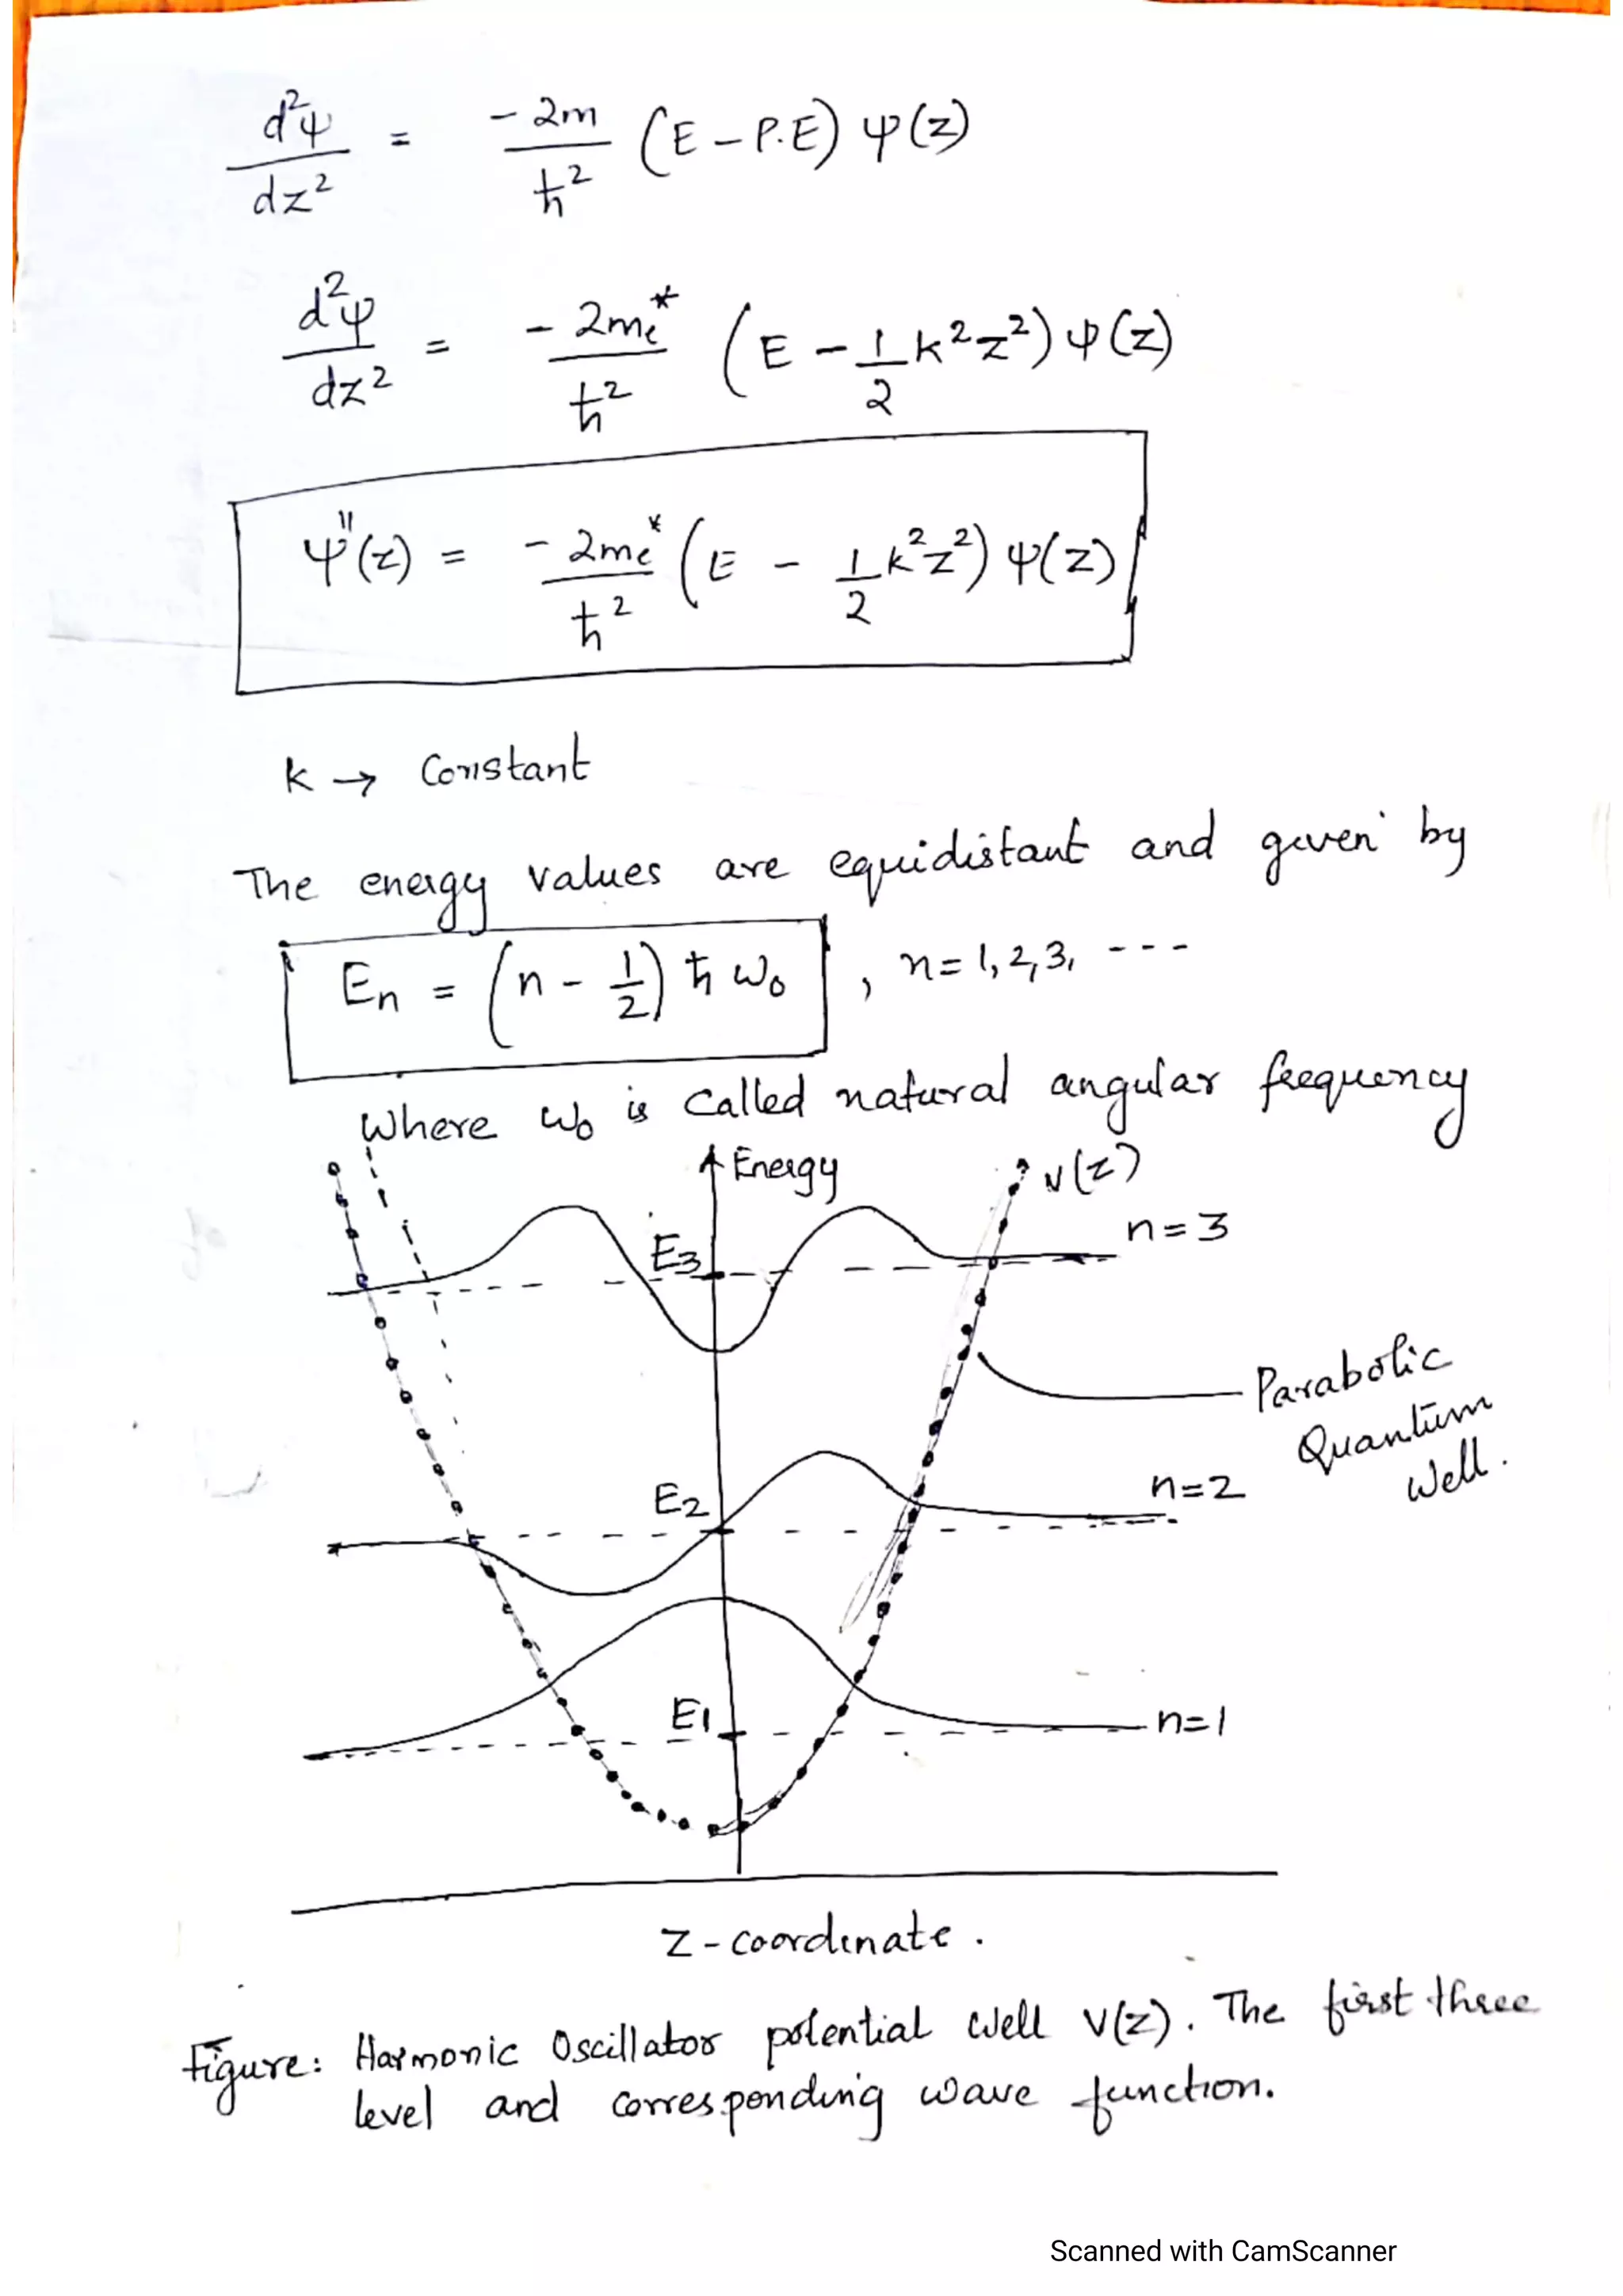 d²ψ/dz² = -2m/ħ² (E - P.E) ψ(z)
d²ψ/dz² = -2me*/ħ² (E - 1/2 k²z²) ψ(z)
ψ''(z) = -2me*/ħ² (E - 1/2 k²z²) ψ(z)
k → Constant
The energy values are equidistant and given by
En = (n - 1/2) ħ ω0 , n = 1, 2, 3, ---
Where ω0 is called natural angular frequency
Energy
v(z)
n = 3
E3
Parabolic
Quantum
Well.
E2
n=2
E1
n=1
z - coordinate .
Figure: Harmonic Oscillator potential well v(z). The first three
level and corresponding wave function.
Scanned with CamScanner